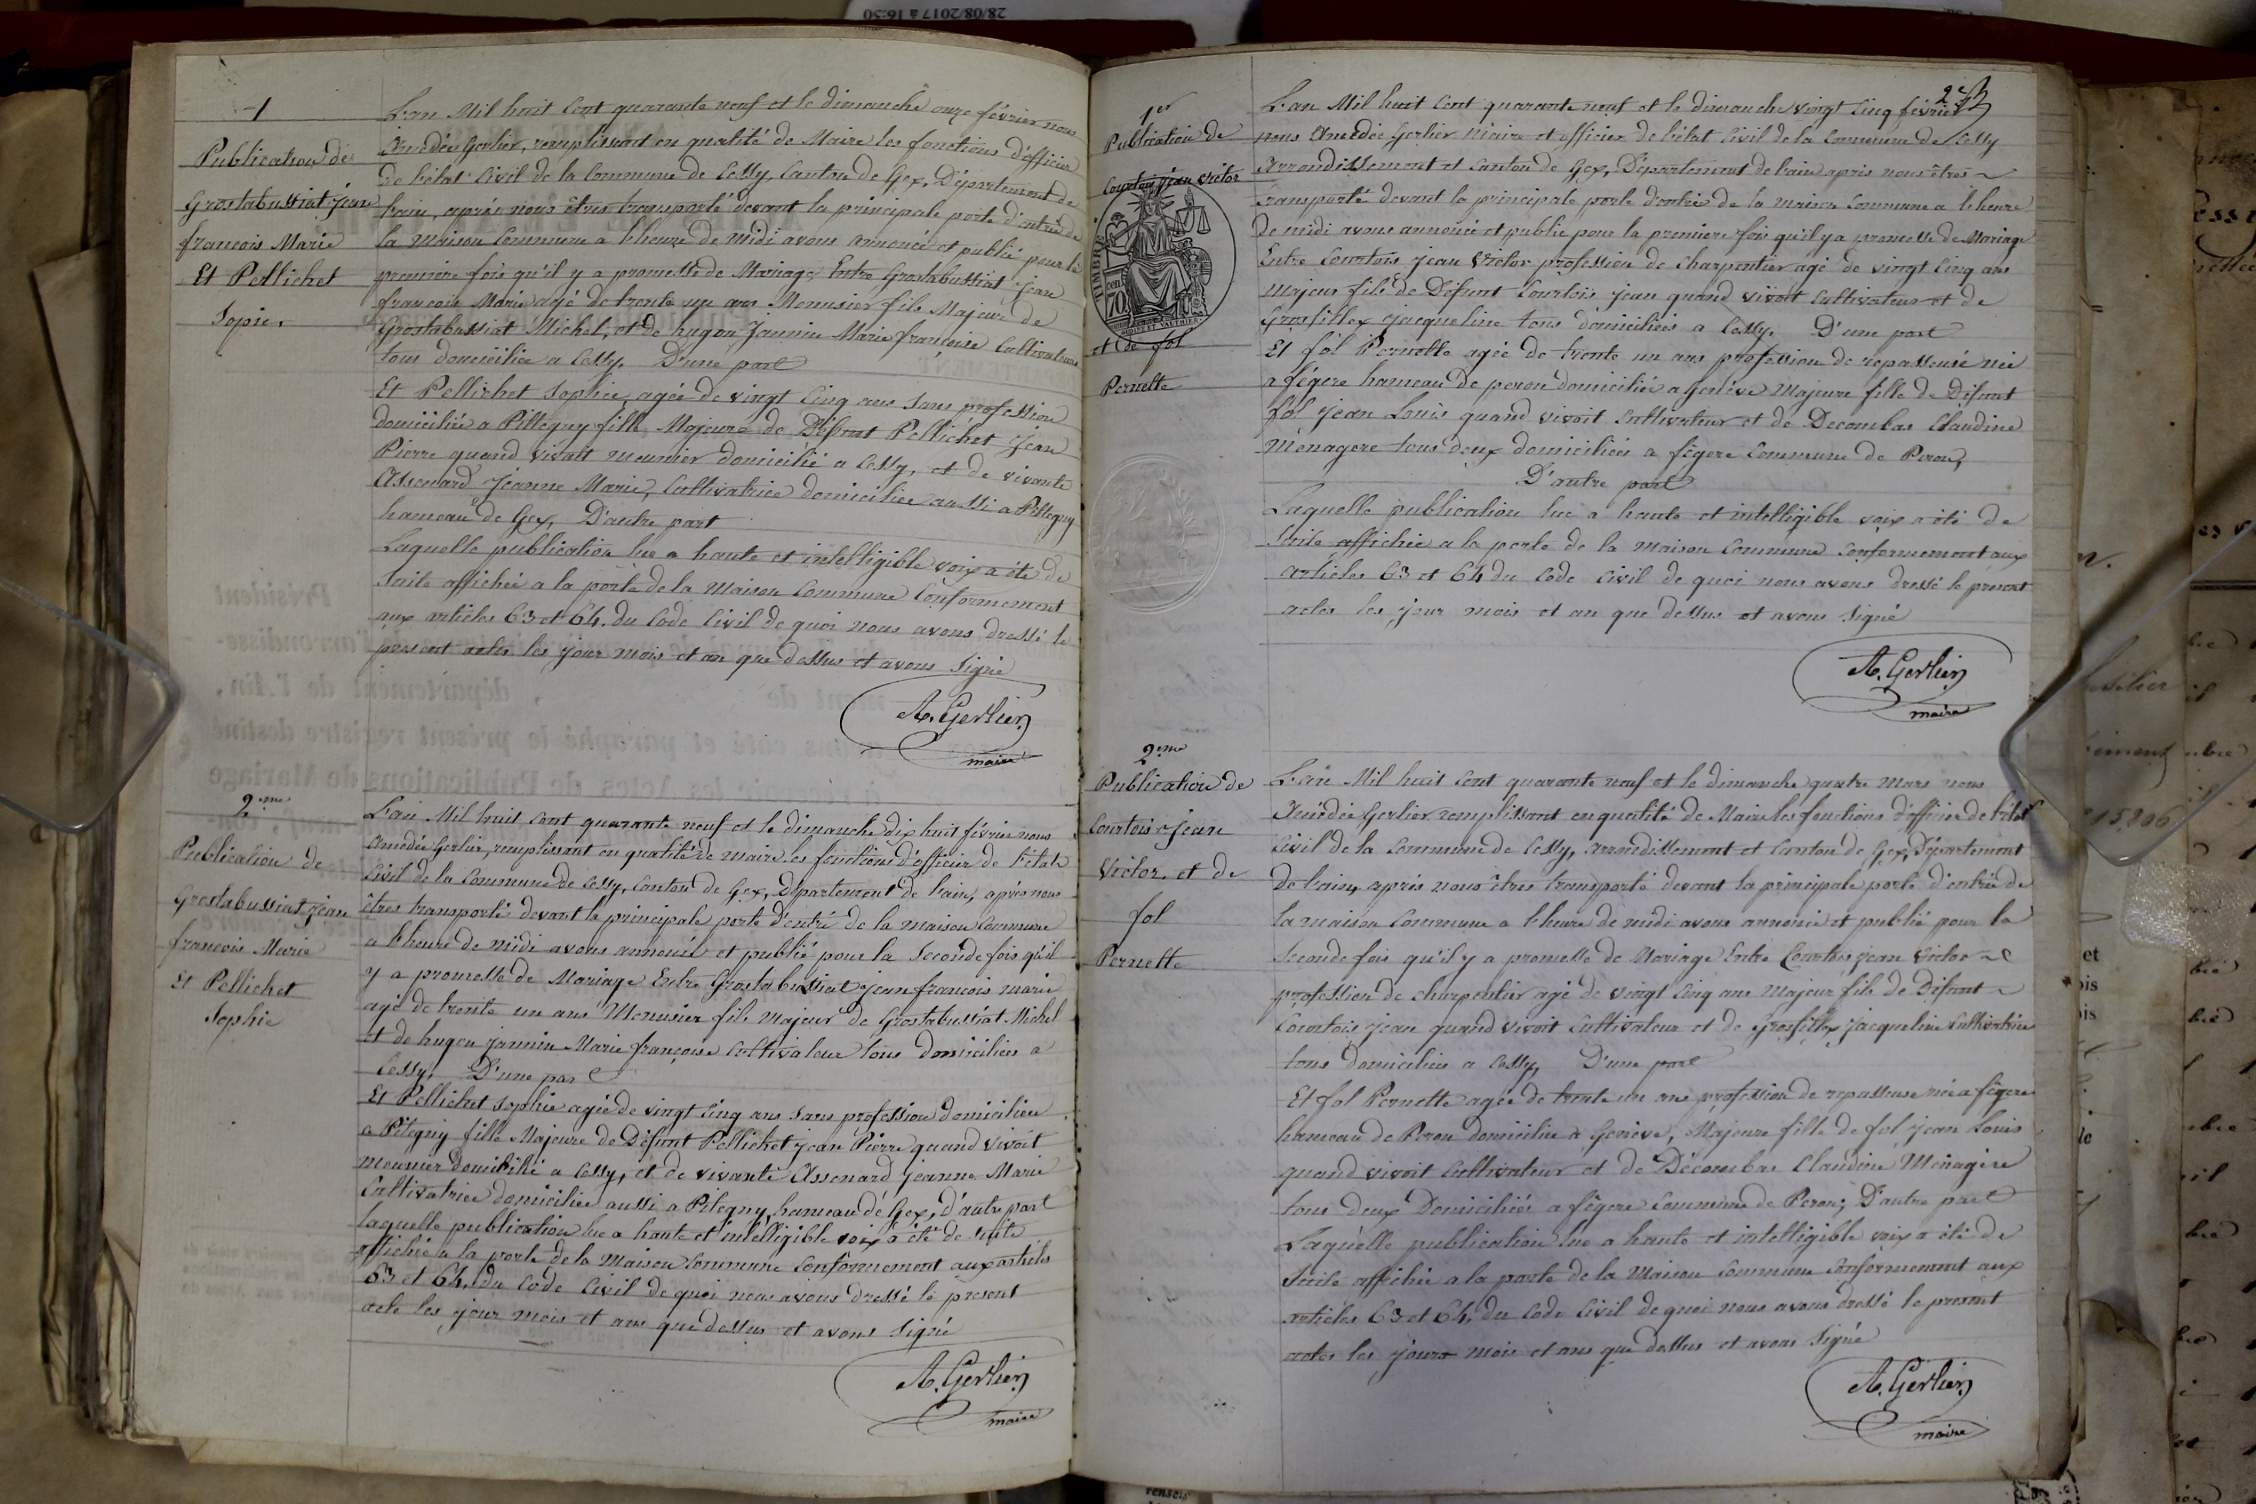 28/08/2017 à 16:50
1
Publication de
Grostabussiat Jean
francois Marie
Et Pellichet
Sopie.
L'an Mil huit Cent quarante neuf et le dimanche onze février nous
Amédée Gerlier, remplissant en qualité de Maire les fonctions d'officier
de l'état Civil de la Commune de Cessy, Canton de Gex, Département de
l'ain, après nous êtres transporté devant la principale porte d'entrée de
la Maison Commune a l'heure de Midi avons annoncé et publié pour la
premiere fois qu'il y a promesse de Mariage, Entre Grostabussiat Jean
francois Marie agé de trente un ans Menusier fils Majeur de
Grostabussiat Michel, et de hugon Jannin Marie francoise Cultivateurs
tous domiciliés a Cessy. D'une part
Et Pellichet Sophie, agée de vingt Cinq ans Sans profession
domiciliée a Pitteguy fille Majeure de Défunt Pellichet Jean
Pierre quand vivait meunier domicilié a Cessy, et de vivante
Assenard Jeanne Marie, Cultivatrice domiciliée aussi a Pitteguy
hameau de Gex, D'autre part
Laquelle publication lue a haute et intelligible voix a été de
Suite affichée a la porte de la Maison Commune Conformement
aux articles 63 et 64. du Code Civil de quoi nous avons dressé le
present actes les jour mois et an que dessus et avons Signé
A. Gerlier
maire
2.me
Publication de
Grostabussiat Jean
francois Marie
Et Pellichet
Sophie
L'an Mil huit Cent quarante neuf et le dimanche dix huit février nous
Amédée Gerlier, remplissant en qualité de maire les fonctions d'officier de l'état
Civil de la Commune de Cessy, Canton de Gex, département de l'ain, après nous
êtres transporté devant la principale porte d'entré de la maison Commune
a l'heure de midi avons annoncé et publié pour la Seconde fois qu'il
y a promesse de Mariage Entre Grostabussiat Jean francois marie
agé de trente un ans Menusier fils majeur de Grostabussiat Michel
et de hugon jannin Marie françoise Cultivateur tous domiciliés a
Cessy. D'une part
Et Pellichet Sophie agée de vingt Cinq ans Sans profession domiciliée
a Piteguy fille Majeure de Défunt Pellichet Jean Pierre quand vivoit
meunier domicilié a Cessy, et de vivante Assenard Jeanne Marie
Cultivatrice domiciliée aussi a Piteguy hameau de Gex, d'autre part
Laquelle publication lue a haute et intelligible voix a été de suite
affichée a la porte de la Maison Commune Conformement aux articles
63 et 64, du Code Civil de quoi nous avons dressé le present
acte les jour mois et ans que dessus et avons Signé
A. Gerlier
maire
2e
1er
Publication de
Courtois Jean Victor
TIMBRE
70
et de fol
Pernette
L'an Mil huit Cent quarante neuf et le dimanche vingt Cinq février
nous Amédée Gerlier Maire et officier de l'état Civil de la Commune de Cessy
Arrondissement et Canton de Gex, Département de l'ain après nous êtres
transporté devant la principale porte d'entrée de la maison Commune a l'heure
De midi avons annoncé et publié pour la premiere fois qu'il y a promesse de Mariage
Entre Courtois Jean Victor profession de Charpentier agé de vingt Cinq ans
majeur fils de Défunt Courtois Jean quand vivoit Cultivateur et de
Grosfillex Jacqueline tous domiciliés a Cessy. D'une part
Et fol Pernette agée de trente un ans profession de repasseuse née
a fégere hameau de peron domiciliée a Genève Majeure fille de Défunt
fol Jean Louis quand vivoit Cultivateur et de Decombas Claudine
Ménagere tous deux domiciliés a fégere Commune de Peron,
D'autre part
Laquelle publication lue a haute et intelligible voix a été de
Suite affichée a la porte de la Maison Commune Conformement aux
articles 63 et 64 du Code Civil de quoi nous avons dressé le present
actes les jour mois et an que dessus et avons Signé
A. Gerlier
maire
2.me
Publication de
Courtois Jean
Victor et de
fol
Pernette
L'an Mil huit Cent quarante neuf et le dimanche quatre Mars nous
Amédée Gerlier remplissant en qualité de Maire les fonctions d'officier de l'état
Civil de la Commune de Cessy, arrondissement et Canton de Gex, Département
De l'ain, après nous êtres transporté devant la principale porte d'entrée de
la maison Commune a l'heure de midi avons annoncé et publié pour la
Seconde fois qu'il y a promesse de Mariage Entre Courtois Jean Victor
profession de charpentier agé de vingt Cinq ans Majeur fils de Défunt
Courtois Jean quand vivoit Cultivateur et de Grosfillex Jacqueline Cultivatrice
tous domiciliés a Cessy, D'une part
Et fol Pernette agée de trente un ans profession de repasseuse née a fégere
hameau de Peron domiciliée a Genève, Majeure fille de fol Jean Louis
quand vivoit Cultivateur et de Décombas Claudine Ménagère
tous deux Domiciliés a fégere Commune de Peron; D'autre part
Laquelle publication lue a haute et intelligible voix a été de
Suite affichée a la porte de la Maison Commune Conformement aux
articles 63 et 64, du Code Civil de quoi nous avons dressé le present
actes les jours mois et ans que dessus et avons Signé
A. Gerlier
maire